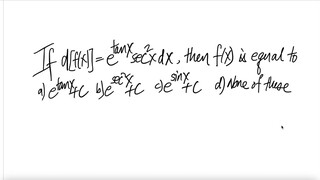 If d[f(x)] = e^{tanx} sec²x dx, then f(x) is equal to
a) e^{tanx}+c b) e^{sec²x}+c c) e^{sinx}+c d) None of these